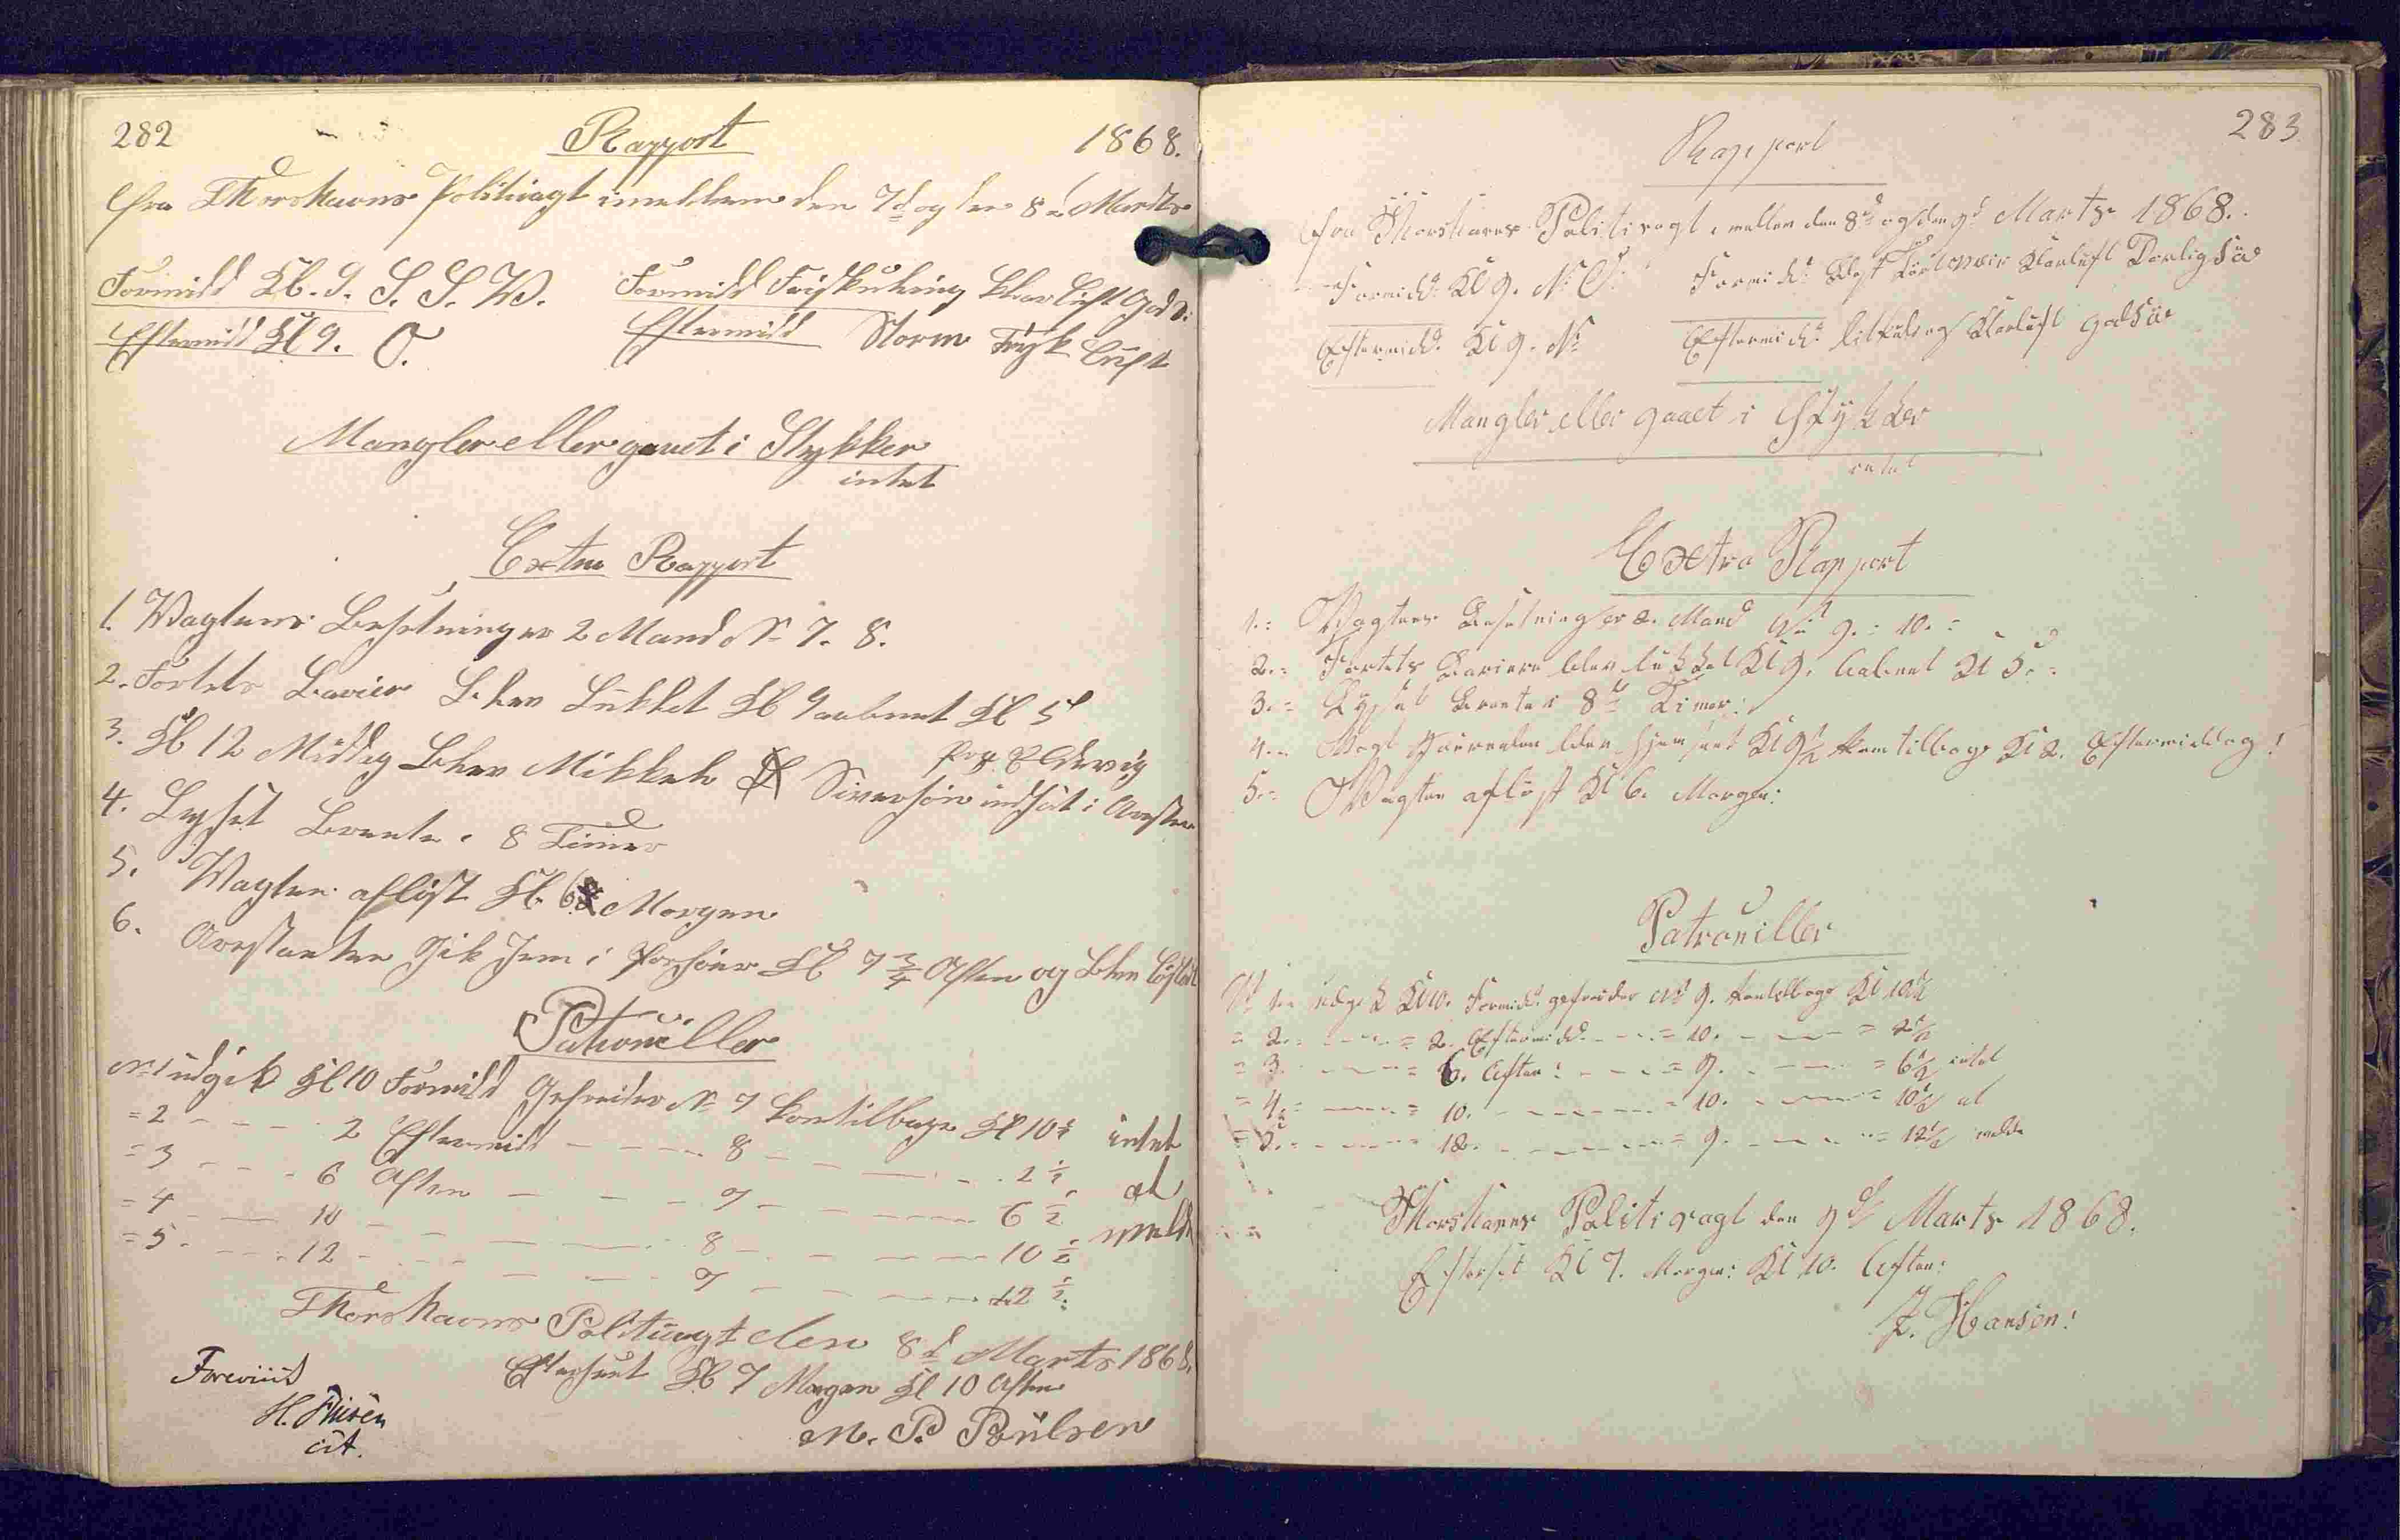 282 Rapport 1868.
fra Thorshavns Politivagt imellem den 7d og den 8d Marts
Formidd Kl. 9. S. S. W. Formidd Friskuling klar Luft God S:
Eftermidd Kl 9. O. Eftermidd Storm Tyk Luft
Mangler eller gaaet i Stykker
intet
Extra Rapport
1. Vagtens Besetning er 2 Mand No 7. 8.
2. Fortets Barier blev Lukket Kl 9 aabnet Kl 5
3. Kl 12 Middag blev Mikkel Siversøn indsat i Aresten
4. Lyset Brente i 8 Timer
5. Vagten afløst Kl. 6 Morgen
6. Arestanten Gik Jem i Forhør Kl 7 3/4 Aften og blev
Patrouiller
No 1 udgik Kl 10 Formidd Gefreider No 7 kom tilbage Kl 10 1/2 intet
= 2 - - - - 2 Eftermidd - - - - 8 - - - - 2 1/2 at
= 3 - - - - 6 Aften - - - - 7 - - - - 6 1/2 melde
= 4 - - - - 10 - - - - 8 - - - - 10 1/2
= 5 - - - - 12 - - - - 7 - - - - 12 1/2
Thorshavns Politivagt den 8d Marts 1868.
Efterseet Kl 7 Morgen Kl 10 Aften
M. P. Poulsen
Foreviist
cst.
283
Rapport
fra Thorshavns Politivagt imellem den 8d og den 9d Marts 1868.
Formidd: Kl 9. N: O: Formidd: Klarluft Daarlig Sø
Eftermidd: Kl 9. N: Eftermidd: Klarluft god Sø
Mangler eller gaaet i Stykker
intet
Extra Rapport
1.= Vagtens Besetning er 2. Mand No 9. = 10. =
2.= Fortets Bariere blev lukket Kl 9. Aabnet Kl 5. =
3.= Lyset Brente i 8 Timer:
4.= Vagt blev hjemsent Kl 9 1/2 kom tilbage Kl 2. Eftermiddag!
5.= Vagten afløst Kl 6. Morgen:
Patrouiller
No 1= udgik Kl 10. Formidd: gefreider No 9. kom tilbage Kl 10 1/2
= 2. - - - = 2. Eftermidd. - - = 10. - - - = 2 1/2
= 3. - - - = 6. Aften: - - = 9. - - - = 6 1/2 intet
= 4. - - - = 10. - - - = 10. - - - = 10 1/2 at
= 5. - - - = 12. - - - = 9. - - - = 12 1/2 melde
Thorshavns Politivagt den 9d Marts 1868.
Efterset Kl 7. Morgen: Kl 10. Aften:
J. Hansen!